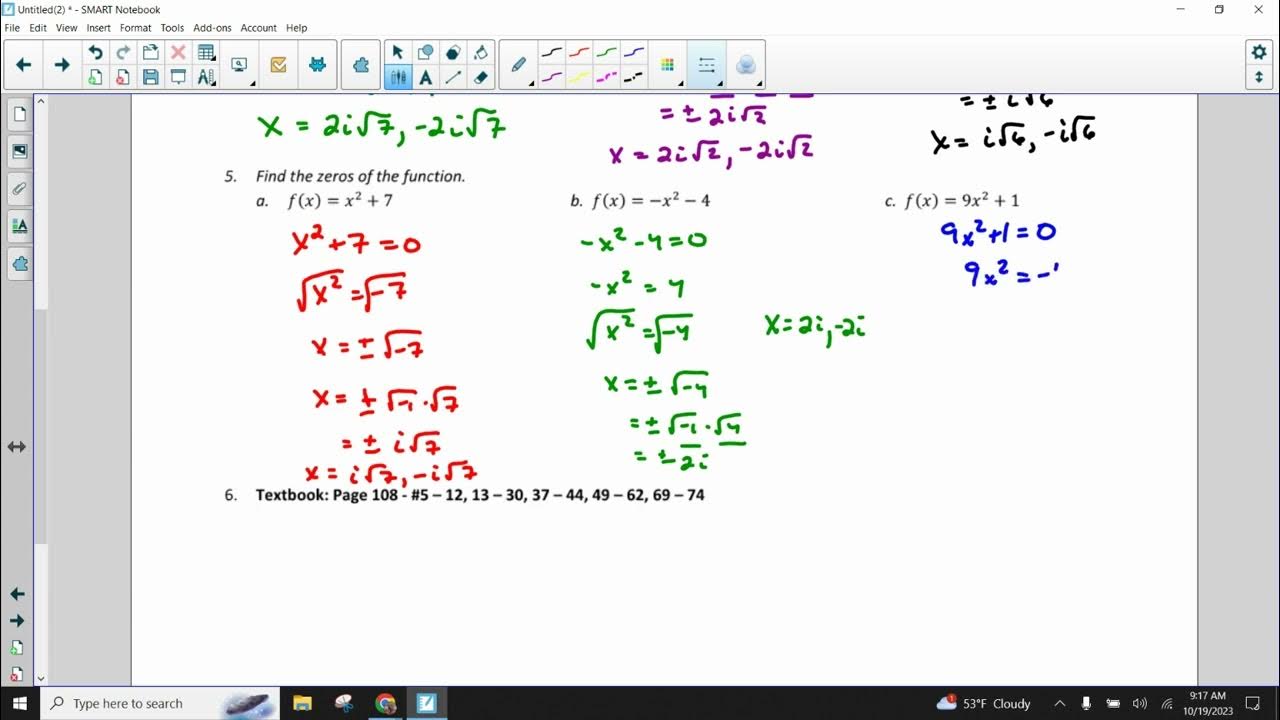 Untitled(2) * - SMART Notebook
File Edit View Insert Format Tools Add-ons Account Help
x = 2i√7, -2i√7
= ± 2i√2
x = 2i√2, -2i√2
= ± i√6
x = i√6, -i√6
5. Find the zeros of the function.
a. f(x) = x² + 7
x² + 7 = 0
√x² = √-7
x = ± √-7
x = ± √-1 · √7
= ± i√7
x = i√7, -i√7
b. f(x) = −x² − 4
-x² - 4 = 0
-x² = 4
√x² = √-4
x = ± √-4
= ± √-1 · √4
= ± 2i
x = 2i, -2i
c. f(x) = 9x² + 1
9x² + 1 = 0
9x² = -1
6. Textbook: Page 108 - #5 – 12, 13 – 30, 37 – 44, 49 – 62, 69 – 74
Type here to search
1
53°F Cloudy
9:17 AM
10/19/2023